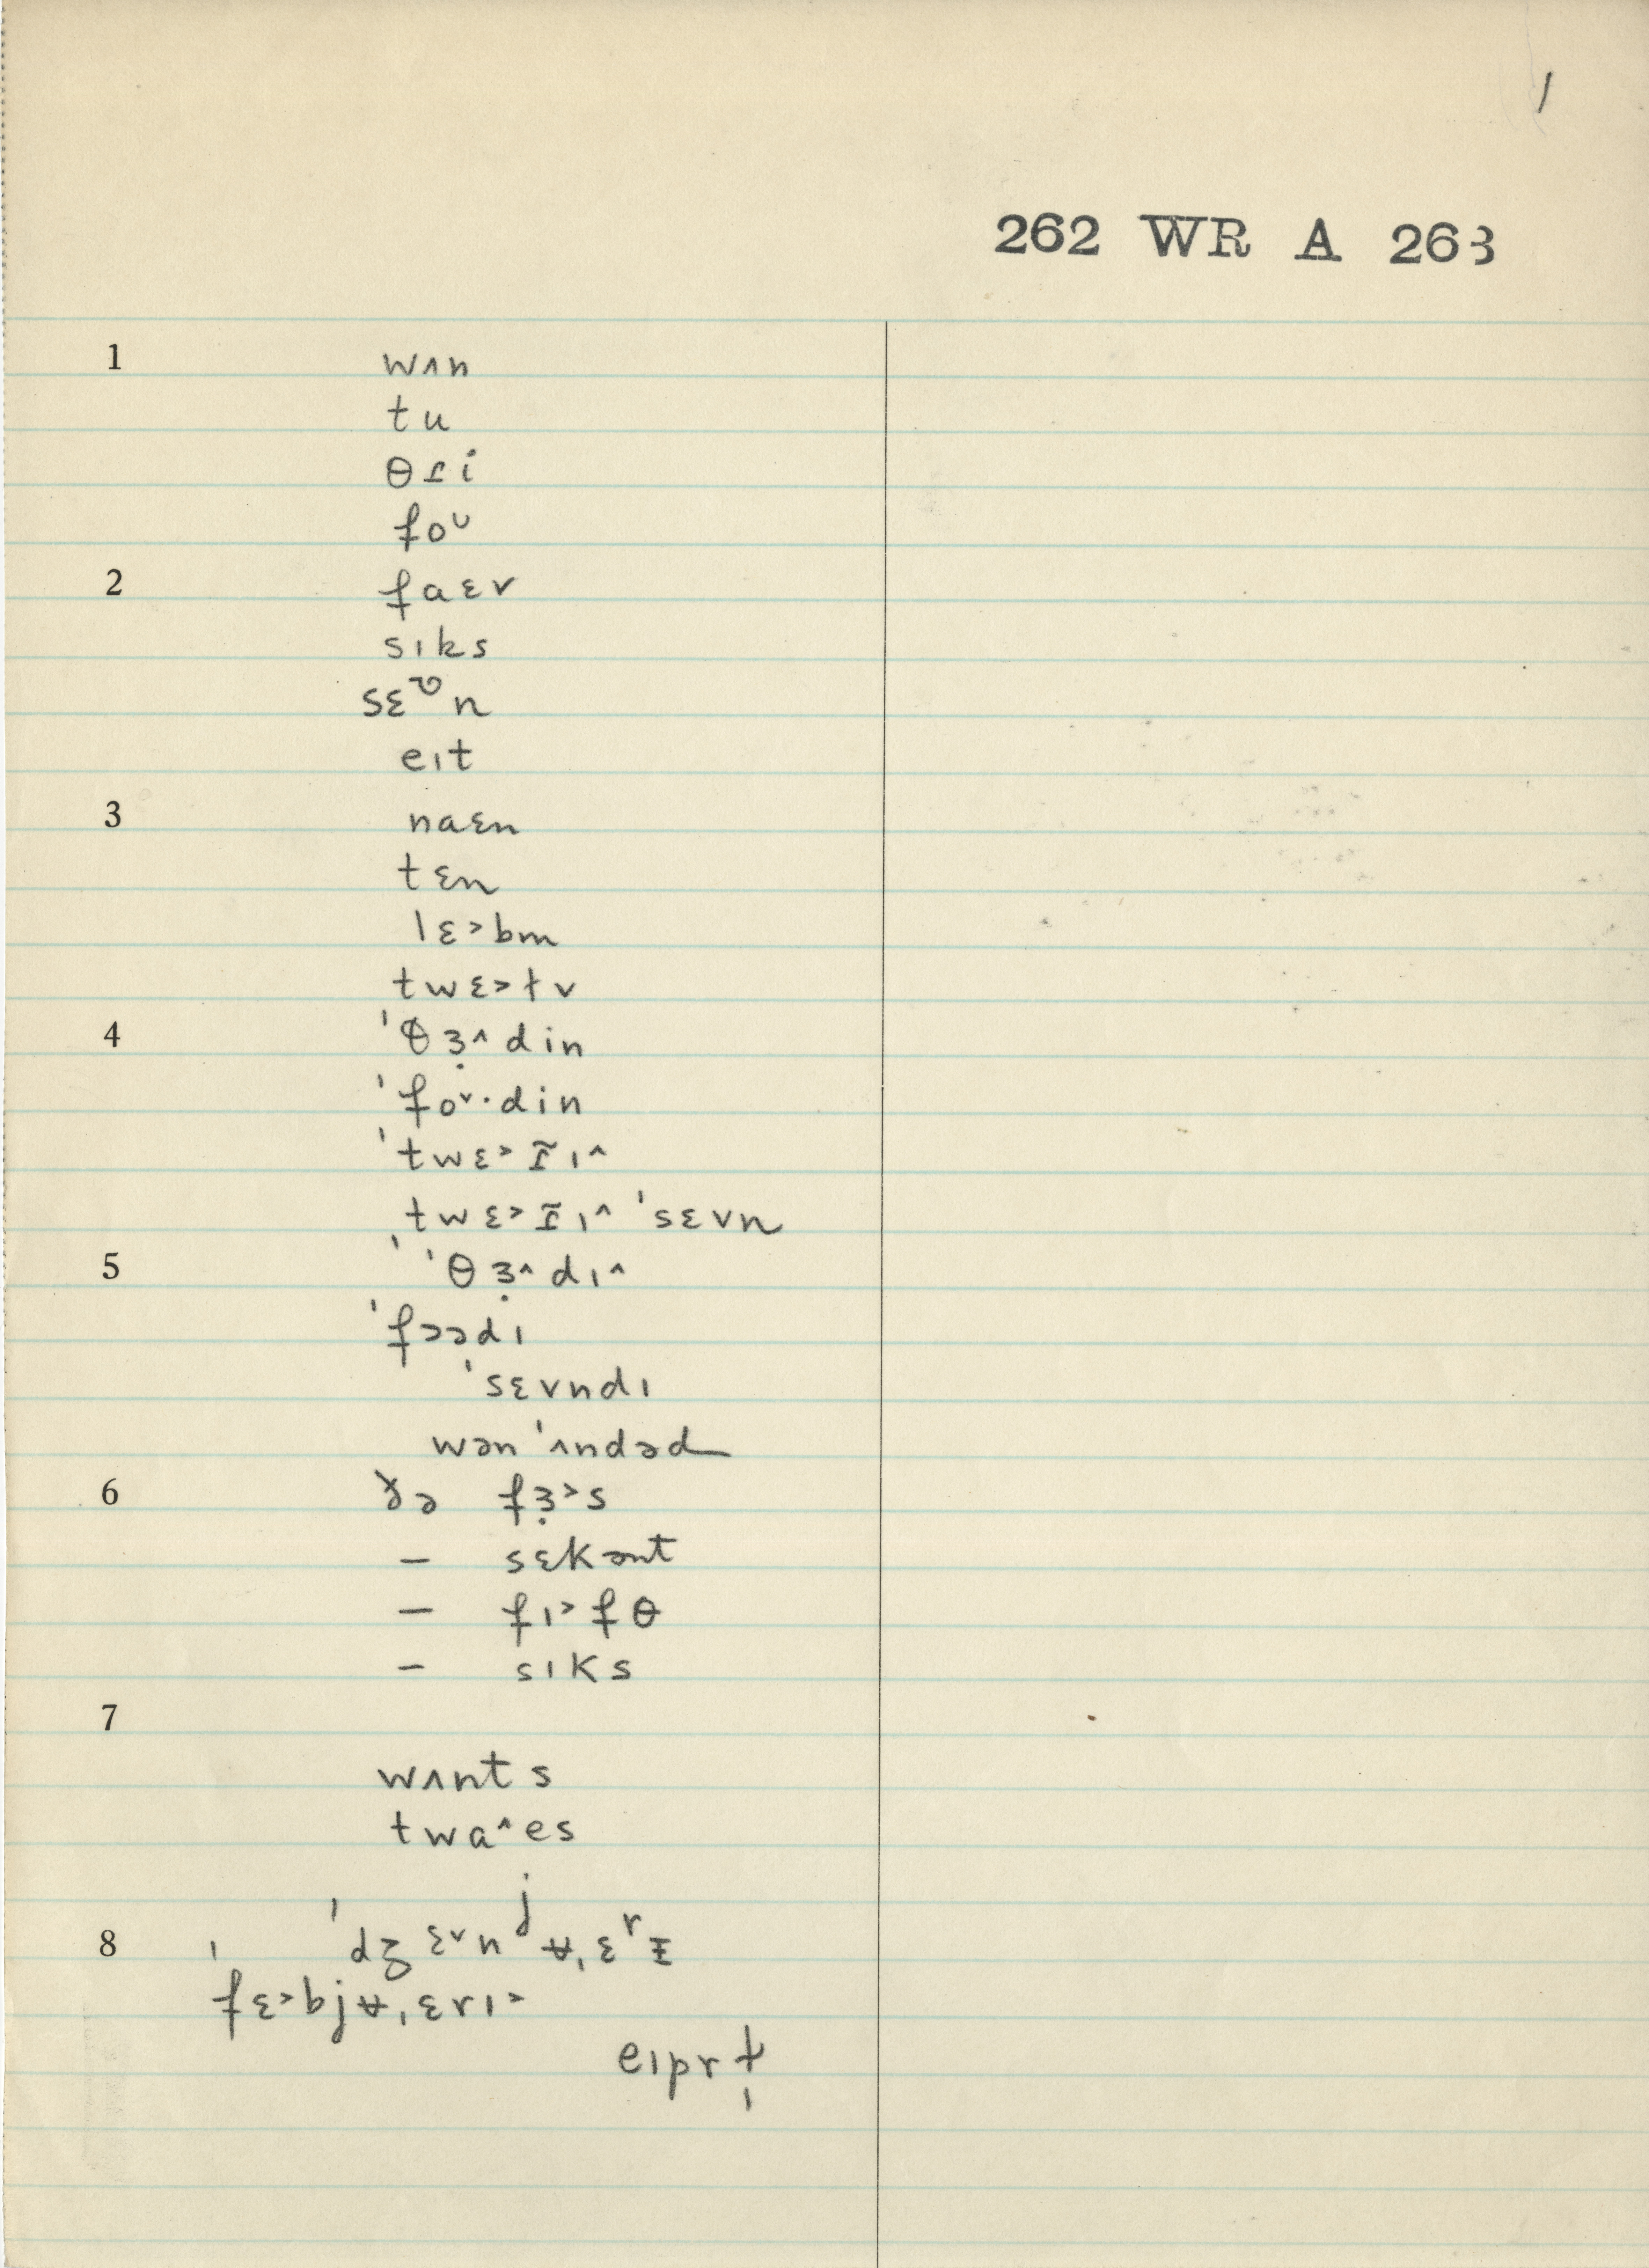 1
262 WR A 263
1 wʌn
tu
θɾi
foᶸ
2 faɛv
sɪks
sɛᶹn
eɪt
3 naɛn
tɛn
lɛ˃bm
twɛ˃ɫv
4 ˈθɜ̣˄din
ˈfoᵛ·din
ˈtwɛ˃ɾ̃ɪ˄
ˌtwɛ˃ɾ̃ɪ˄ ˈsɛvn
5 ˈθɜ̣˄dɪ˄
ˈfɔədɪ
ˈsɛvndɪ
wən ˈʌndəd
6 ðə fɜ̣˃s
— sɛkənt
— fɪ˃fθ
— sɪks
7
wʌnts
twa˄es
8 ˈdʒɛᵛnʲʉˌɛʳɪ
ˈfɛ˃bjʉˌɛrɪ˃
eɪprɫ̩